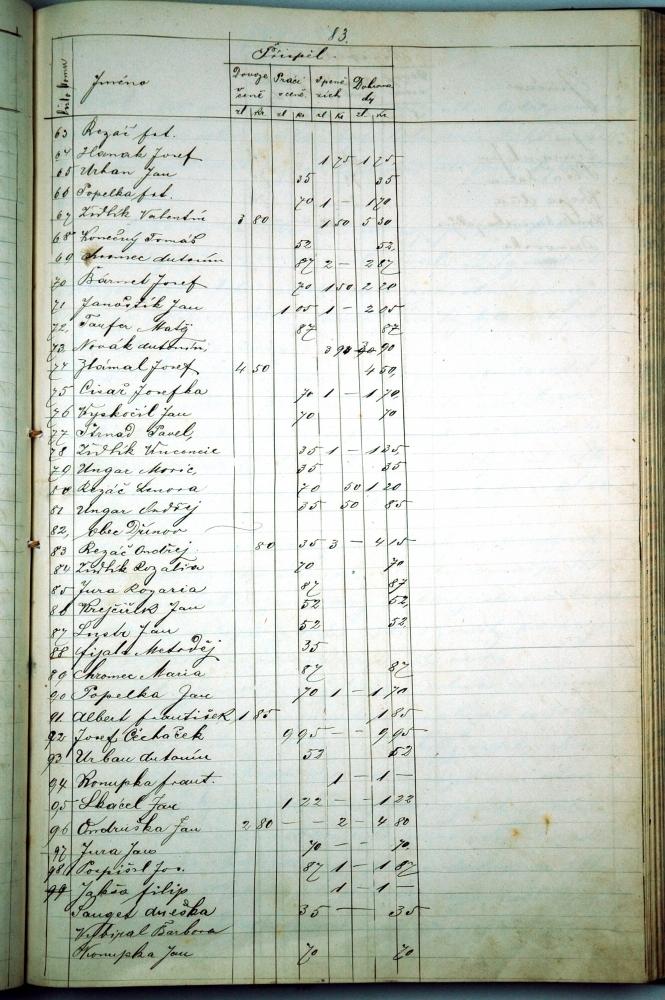 83.
Přispěl
číslo domu Jméno Dovoze čeně Prácí oceně Na penězích Dohroma dy
zl kr zl kr zl kr zl kr
63 Rezáč fst.
64 Hanák Josef 1 75 1 75
65 Urban Jan 35 35
66 Popelka fst. 70 1 — 1 70
67 Zidlík Valentin 3 80 1 50 5 30
68 Konečný Tomáš 52 52
69 Chromec Antonín 87 2 — 2 87
70 Bárnet Josef 70 1 50 2 20
71 Janoštík Jan 1 05 1 — 2 05
72 Taufa Matěj 87 87
73 Novák Antonín 3 90 3 90
74 Zbámal Josef 4 50 4 50
75 Cisař Josefka 70 1 — 1 70
76 Vyskočil Jan 70 70
77 Strnad Pavel
78 Zidlík Vincencie 35 1 — 1 35
79 Ungar Moric 35 35
80 Rezáč Lenora 70 50 1 20
81 Ungar Ondřej 35 50 85
82 obec Dřínov
83 Rezáč Ondřej 80 35 3 — 4 15
84 Zidlík Rozalia 70 70
85 Jura Rozaria 87 87
86 Krejčiřík Jan 52 52
87 Jan 52 52
88 fijala Metoděj 35
89 Chromec Maria 87 87
90 Popelka Jan 70 1 — 1 70
91 Albert František 1 85 1 85
92 Josef Čecháček 9 95 — — 9 95
93 Urban Antonín 52 52
94 Konupka frant. 1 — 1 —
95 Skácel Jan 1 22 — — 1 22
96 Ondruška Jan 2 80 — — 2 — 4 80
97 Jura Jan 70 — 70
98 Pospíšil Jos. 87 1 — 1 87
99 Jakša filip 1 — 1 —
Sanget Anežka 35 — 35
Vybíral Barbora
Konupka Jan 70 70